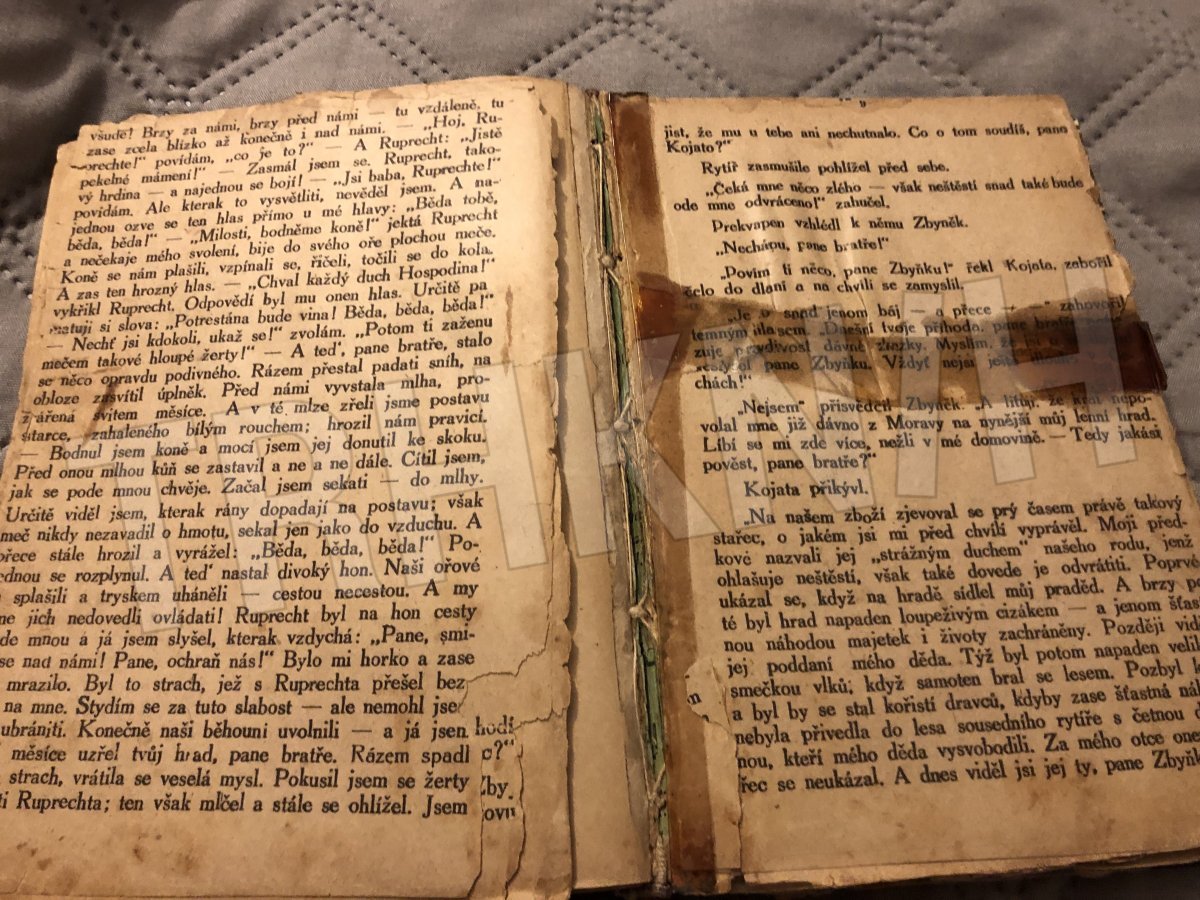 všude! Brzy za námi, brzy před námi — tu vzdáleně, tu
zase zcela blízko až konečně i nad námi. — „Hoj, Ru-
prechte!“ povídám, „co je to?“ — A Ruprecht: „Jistě
pekelné mámení!“ — Zasmál jsem se. Ruprecht, tako-
vý hrdina — a najednou se bojí! — „Jsi baba, Ruprechte!“
povídám. Ale kterak to vysvětliti, nevěděl jsem. A na-
jednou ozve se ten hlas přímo u mé hlavy: „Běda tobě,
běda, běda!“ — „Milosti, bodněme koně!“ jektá Ruprecht
a nečekaje mého svolení, bije do svého oře plochou meče.
Koně se nám plašili, vzpínali se, řičeli, točili se do kola.
A zas ten hrozný hlas. — „Chval každý duch Hospodina!“
vykřikl Ruprecht. Odpovědí byl mu onen hlas. Určitě pa
matuji si slova: „Potrestána bude vina! Běda, běda, běda!“
— Nechť jsi kdokoli, ukaž se!“ zvolám. „Potom ti zaženu
mečem takové hloupé žerty!“ — A teď, pane bratře, stalo
se něco opravdu podivného. Rázem přestal padati sníh, na
obloze zasvítil úplněk. Před námi vyvstala mlha, pro-
zářená svitem měsíce. A v té mlze zřeli jsme postavu
starce, zahaleného bílým rouchem; hrozil nám pravicí.
— Bodnul jsem koně a mocí jsem jej donutil ke skoku.
Před onou mlhou kůň se zastavil a ne a ne dále. Cítil jsem,
jak se pode mnou chvěje. Začal jsem sekati — do mlhy.
Určitě viděl jsem, kterak rány dopadají na postavu; však
meč nikdy nezavadil o hmotu, sekal jen jako do vzduchu. A
přece stále hrozil a vyrážel: „Běda, běda, běda!“ Po-
ednou se rozplynul. A teď nastal divoký hon. Naši ořové
splašili a tryskem uháněli — cestou necestou. A my
me jich nedovedli ovládati! Ruprecht byl na hon cesty
de mnou a já jsem slyšel, kterak vzdychá: „Pane, smi-
se nad námi! Pane, ochraň nás!“ Bylo mi horko a zase
mrazilo. Byl to strach, jež s Ruprechta přešel bez
na mne. Stydím se za tuto slabost — ale nemohl jse
ubrániti. Konečně naši běhouni uvolnili — a já jsen
měsíce uzřel tvůj hrad, pane bratře. Rázem spadl
strach, vrátila se veselá mysl. Pokusil jsem se žerty
ti Ruprechta; ten však mlčel a stále se ohlížel. Jsem
hodí
c?“
Zby
ovn
jist, že mu u tebe ani nechutnalo. Co o tom soudíš, pane
Kojato?“
Rytíř zasmušile pohlížel před sebe.
„Čeká mne něco zlého — však neštěstí snad také bude
ode mne odvráceno!“ zahučel.
Prekvapen vzhlédl k němu Zbyněk.
„Nechápu, pane bratře!“
„Povím ti něco, pane Zbyňku!“ řekl Kojata, zabořil
čelo do dlaní a na chvíli se zamyslil.
„Je o snad jenom báj — a přece — “ zahovořil
temným hlasem. „Dnešní tvoje příhoda, pane bratře
zuje pravdivost dávné zkazky. Myslím, že jsi o
pane Zbyňku. Vždyť nejsi
chách!“
„Nejsem“ přisvědčil Zbyněk. „A lituji, že král nepo-
volal mne již dávno z Moravy na nynější můj lenní hrad.
Líbí se mi zde více, nežli v mé domovině. — Tedy jakási
pověst, pane bratře?“
Kojata přikývl.
„Na našem zboží zjevoval se prý časem právě takový
stařec, o jakém jsi mi před chvílí vyprávěl. Moji před-
kové nazvali jej „strážným duchem“ našeho rodu, jenž
ohlašuje neštěstí, však také dovede je odvrátiti. Poprvé
ukázal se, když na hradě sídlel můj praděd. A brzy po
té byl hrad napaden loupeživým cizákem — a jenom šťas
nou náhodou majetek i životy zachráněny. Později vidě
jej poddaní mého děda. Týž byl potom napaden velik
smečkou vlků, když samoten bral se lesem. Pozbyl k
a byl by se stal kořistí dravců, kdyby zase šťastná náh
nebyla přivedla do lesa sousedního rytíře s četnou d
nou, kteří mého děda vysvobodili. Za mého otce one
řec se neukázal. A dnes viděl jsi jej ty, pane Zbyňk
TRHKNIH